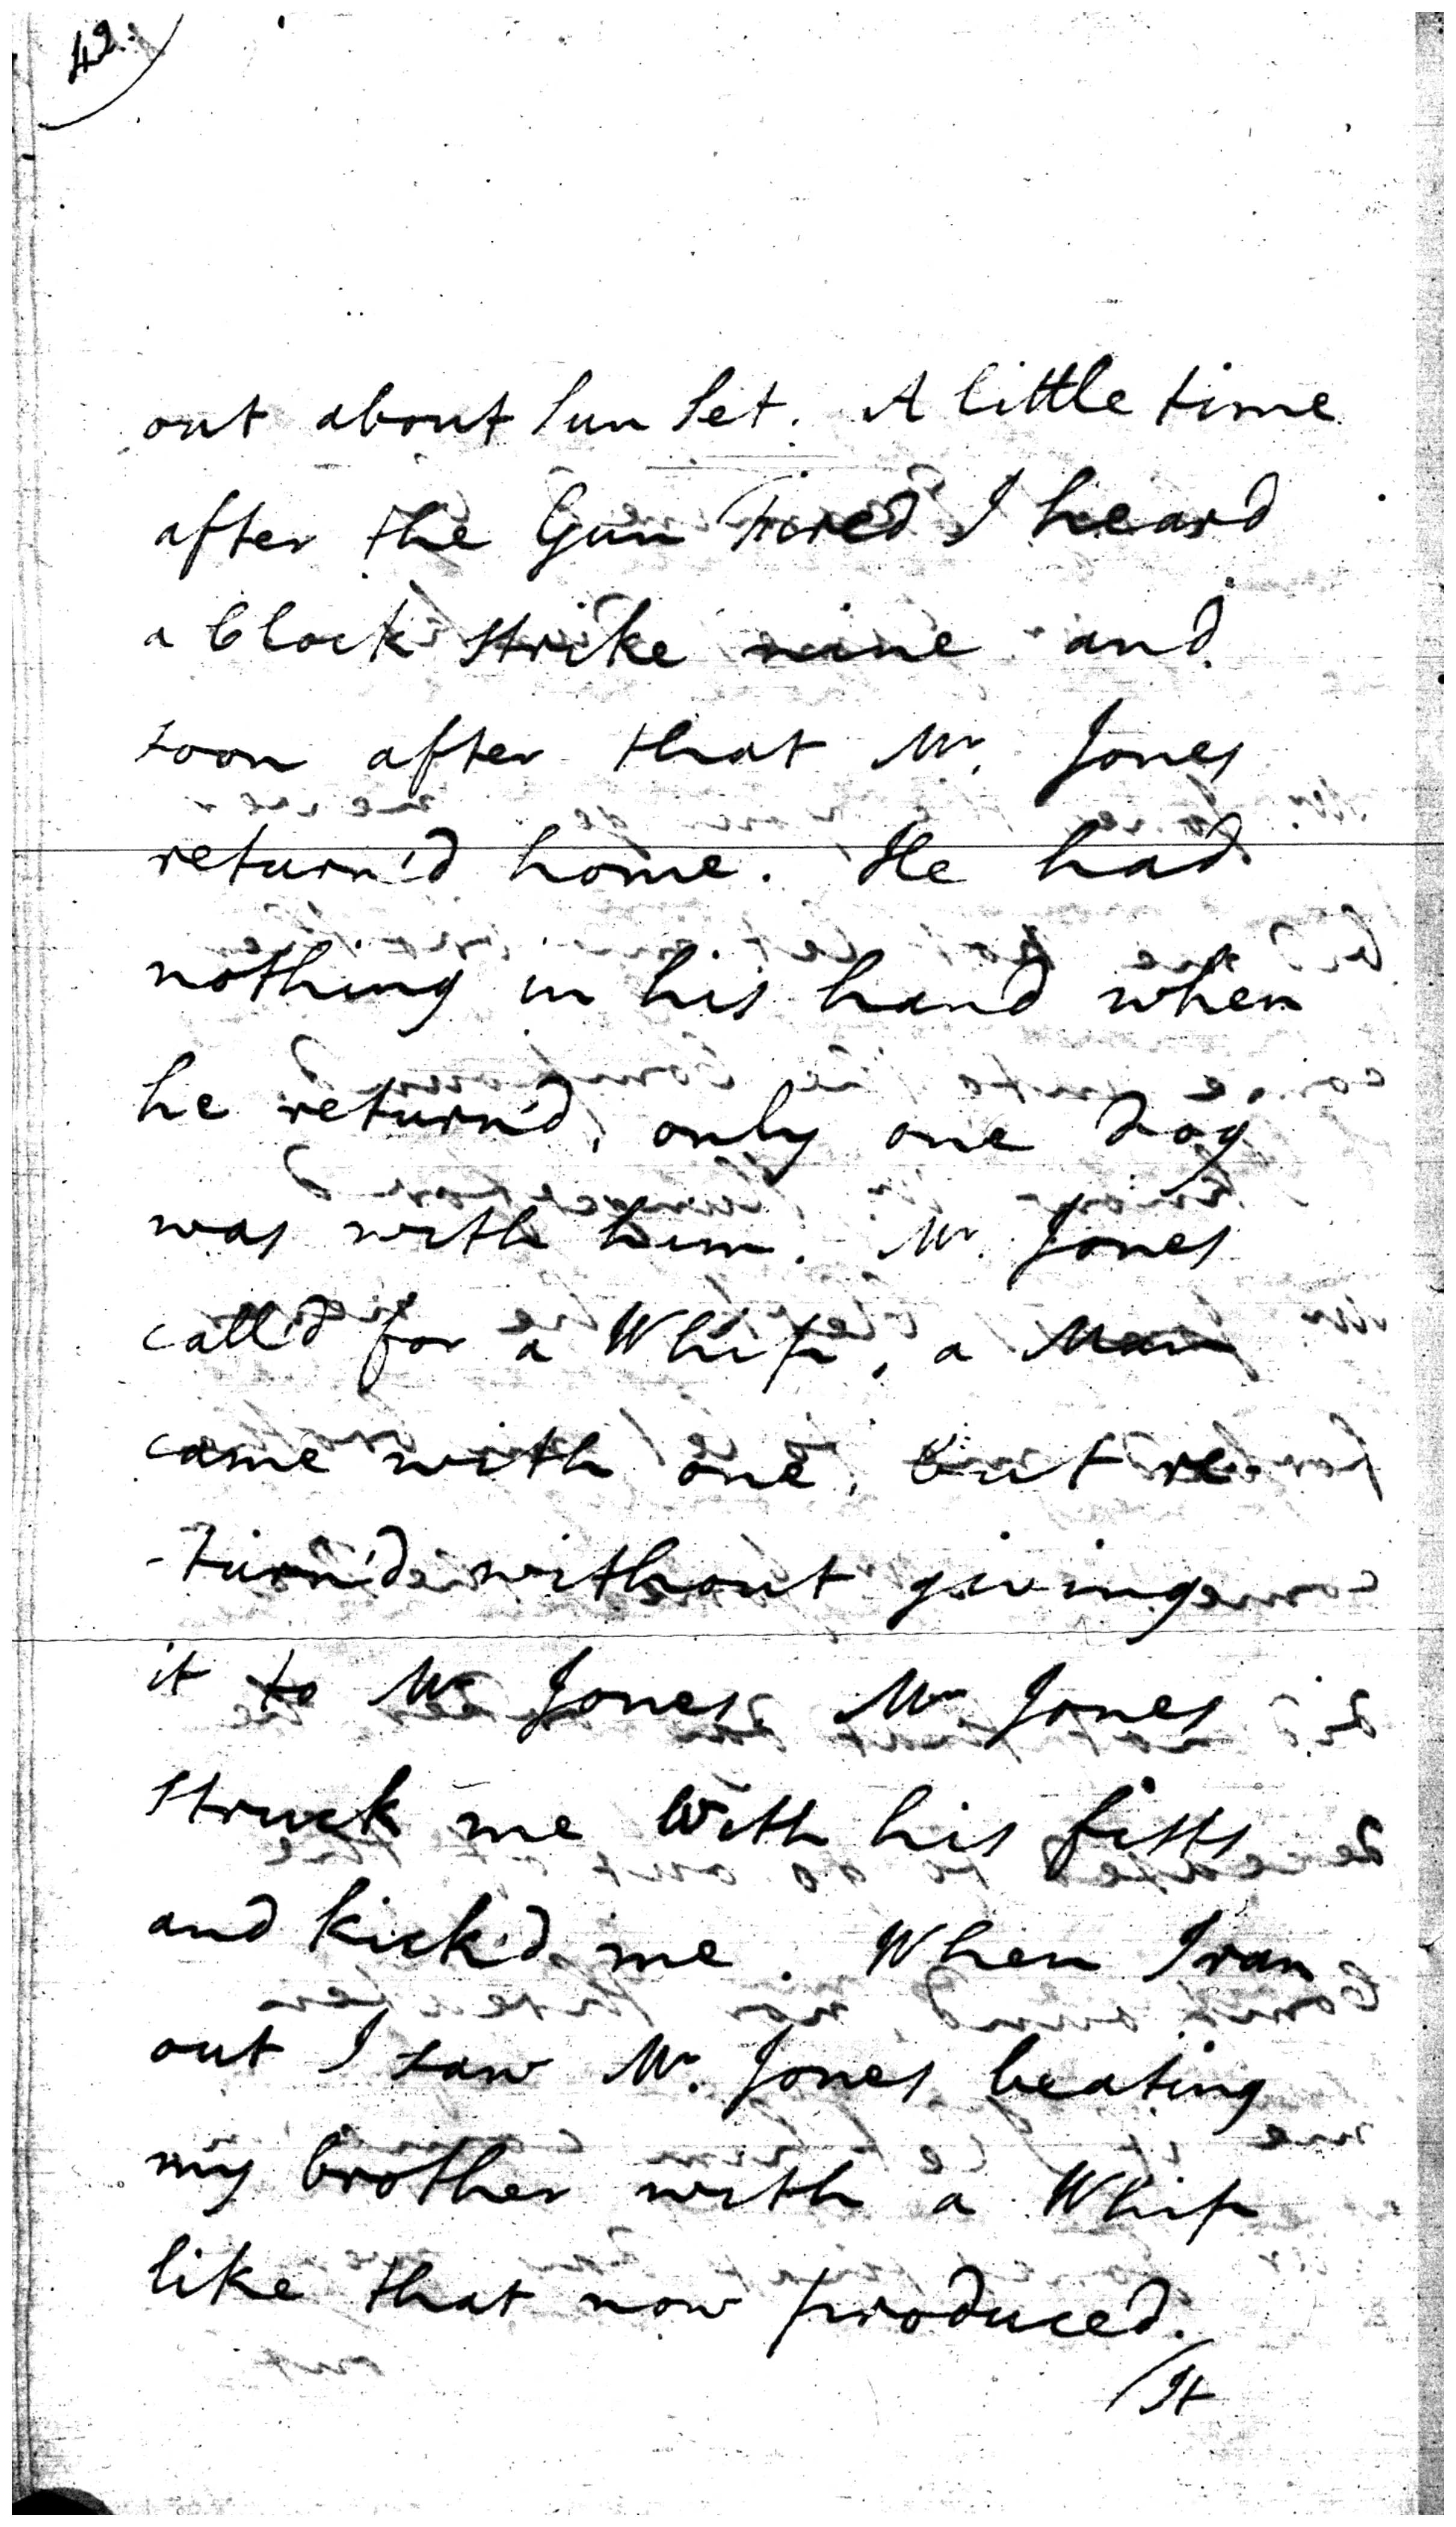 42.
out about Sun Set. A little time
after the Gun Fired I heard
a Clock strike nine and
soon after that Mr. Jones
return'd home. He had
nothing in his hand when
he return'd, only one dog
was with him. Mr. Jones
call'd for a Whip, a Man
came with one, but re-
-turn'd without giving
it to Mr Jones Mr Jones
struck me with his fists
and kick'd me. When I ran
out I saw Mr. Jones beating
my brother with a Whip
like that now produced.
/It